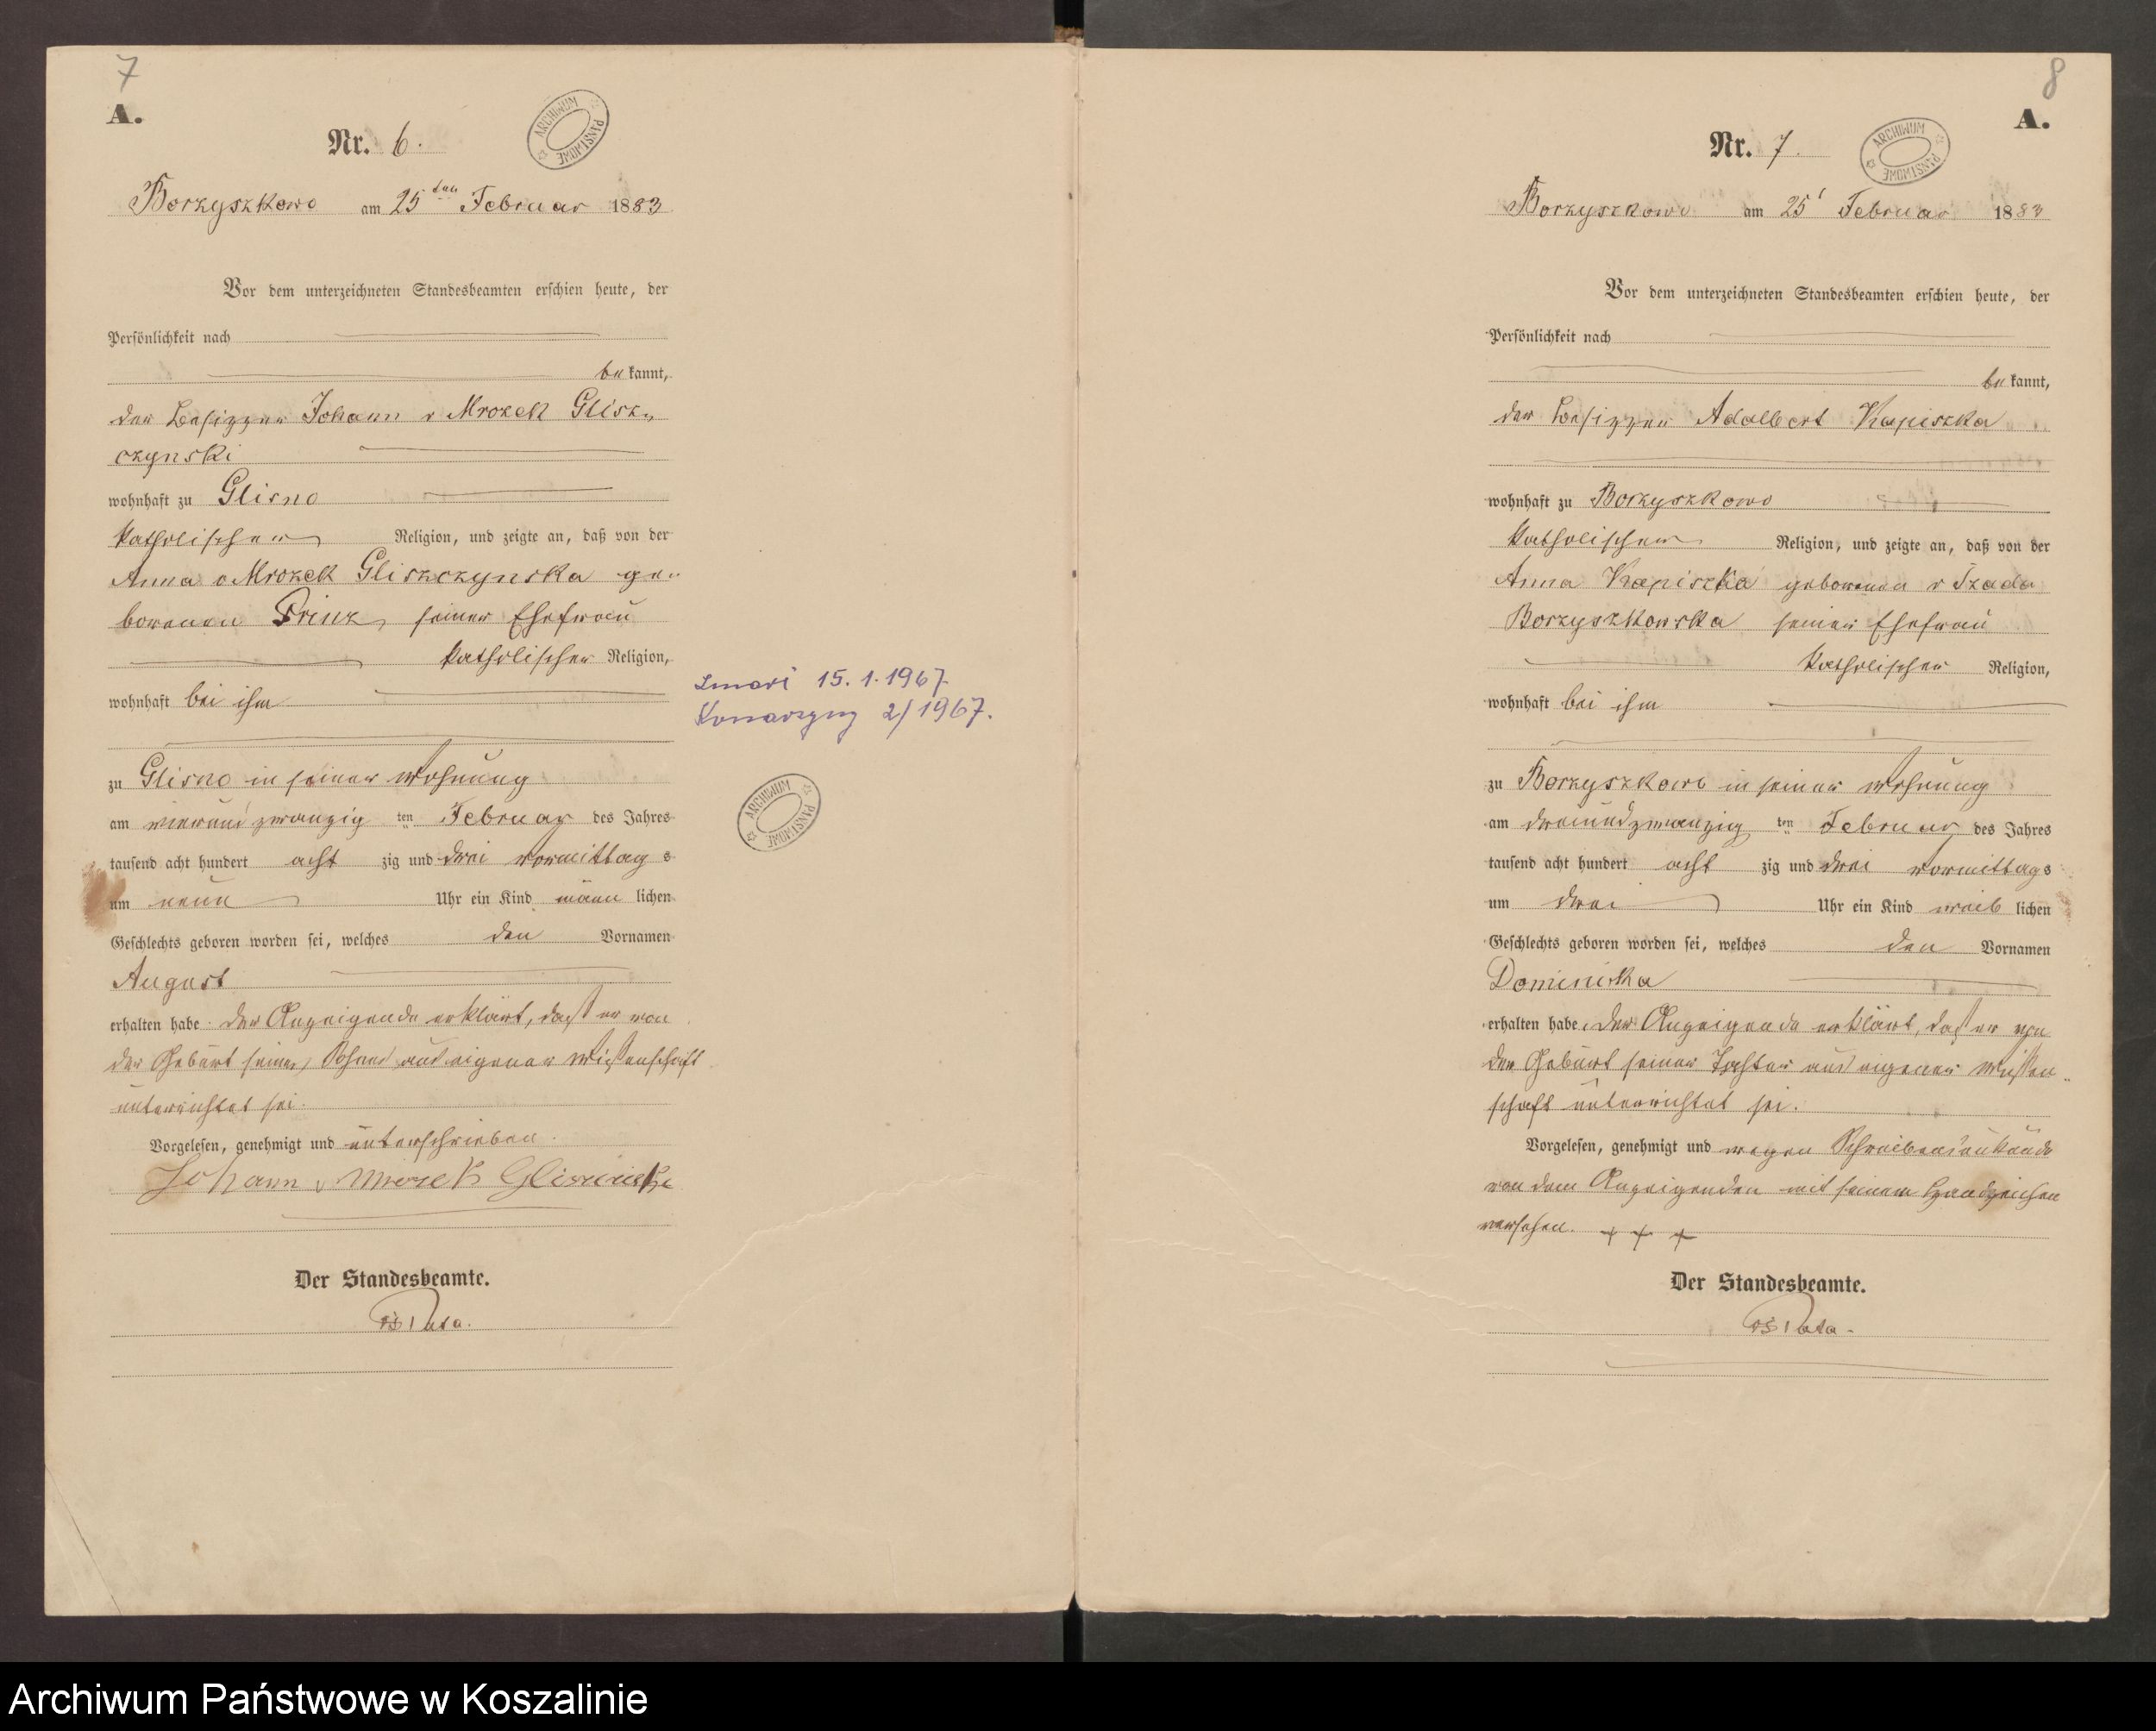 7
A.
Nr. 6.
ARCHIWUM PAŃSTWOWE
Borzyszkowo am 25ten Februar 1883
Vor dem unterzeichneten Standesbeamten erschien heute, der
Persönlichkeit nach
bekannt,
der Besitzer Johann v Mrozek Glisz-
czynski
wohnhaft zu Glisno
katholischer Religion, und zeigte an, daß von der
Anna v Mrozek Gliszczynska ge-
borenen Prinz, seiner Ehefrau
katholischer Religion,
wohnhaft bei ihm
zu Glisno in seiner Wohnung
am vierundzwanzig ten Februar des Jahres
tausend acht hundert acht zig und drei vormittag s
um neun Uhr ein Kind männ lichen
Geschlechts geboren worden sei, welches den Vornamen
August
erhalten habe. Der Anzeigende erklärt, daß er von
der Geburt seines Sohnes aus eigener Wissenschaft
unterrichtet sei.
Vorgelesen, genehmigt und unterschrieben.
Johann v Mrozek
Der Standesbeamte.
zmarł 15.1.1967
Konarzyny 2/1967.
ARCHIWUM PAŃSTWOWE
8
A.
Nr. 7.
ARCHIWUM PAŃSTWOWE
Borzyszkowo am 25t Februar 1883
Vor dem unterzeichneten Standesbeamten erschien heute, der
Persönlichkeit nach
bekannt,
der Besitzer Adalbert Kapiszka
wohnhaft zu Borzyszkowo
katholischer Religion, und zeigte an, daß von der
Anna Kapiszka geborenen v
Borzyszkowska seiner Ehefrau
katholischer Religion,
wohnhaft bei ihm
zu Borzyszkowo in seiner Wohnung
am dreiundzwanzig ten Februar des Jahres
tausend acht hundert acht zig und drei vormittags
um drei Uhr ein Kind weib lichen
Geschlechts geboren worden sei, welches den Vornamen
Dominika
erhalten habe. Der Anzeigende erklärt, daß er von
der Geburt seiner Tochter aus eigener Wissen-
schaft unterrichtet sei.
Vorgelesen, genehmigt und wegen Schreibensunkunde
von dem Anzeigenden mit seinem Handzeichen
versehen. + + +
Der Standesbeamte.
Archiwum Państwowe w Koszalinie